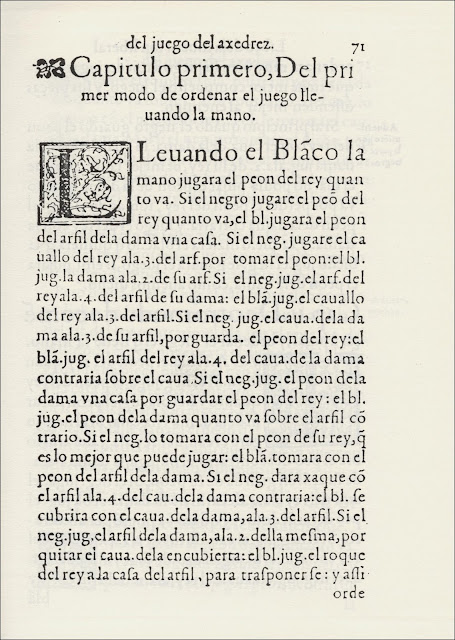 del juego del axedrez. 71
Capitulo primero, Del pri
mer modo de ordenar el juego lle-
uando la mano.
LLeuando el Blãco la
mano jugara el peon del rey quan
to va. Si el negro jugare el peõ del
rey quanto va, el bl. jugara el peon
del arfil dela dama vna casa. Si el neg. jugare el ca
uallo del rey ala .3. del arf. por tomar el peon: el bl.
jug. la dama ala .2. de su arf. Si el neg. jug. el arf. del
rey ala .4. del arfil de su dama: el blã. jug. el cauallo
del rey ala .3. del arfil. Si el neg. jug. el caua. dela da
ma ala .3. de su arfil, por guarda. el peon del rey: el
blã. jug. el arfil del rey ala .4. del caua. de la dama
contraria sobre el caua. Si el neg. jug. el peon dela
dama vna casa por guardar el peon del rey: el bl.
jug. el peon dela dama quanto va sobre el arfil cõ
trario. Si el neg. lo tomara con el peon de su rey, q̃
es lo mejor que puede jugar: el blã. tomara con el
peon del arfil dela dama. Si el neg. dara xaque cõ
el arfil ala .4. del cau. dela dama contraria: el bl. se
cubrira con el caua. dela dama, ala .3. del arfil. Si el
neg. jug. el arfil dela dama, ala .2. della mesma, por
quitar el caua. dela encubierta: el bl. jug. el roque
del rey ala casa del arfil, para trasponer se: y assi
orde